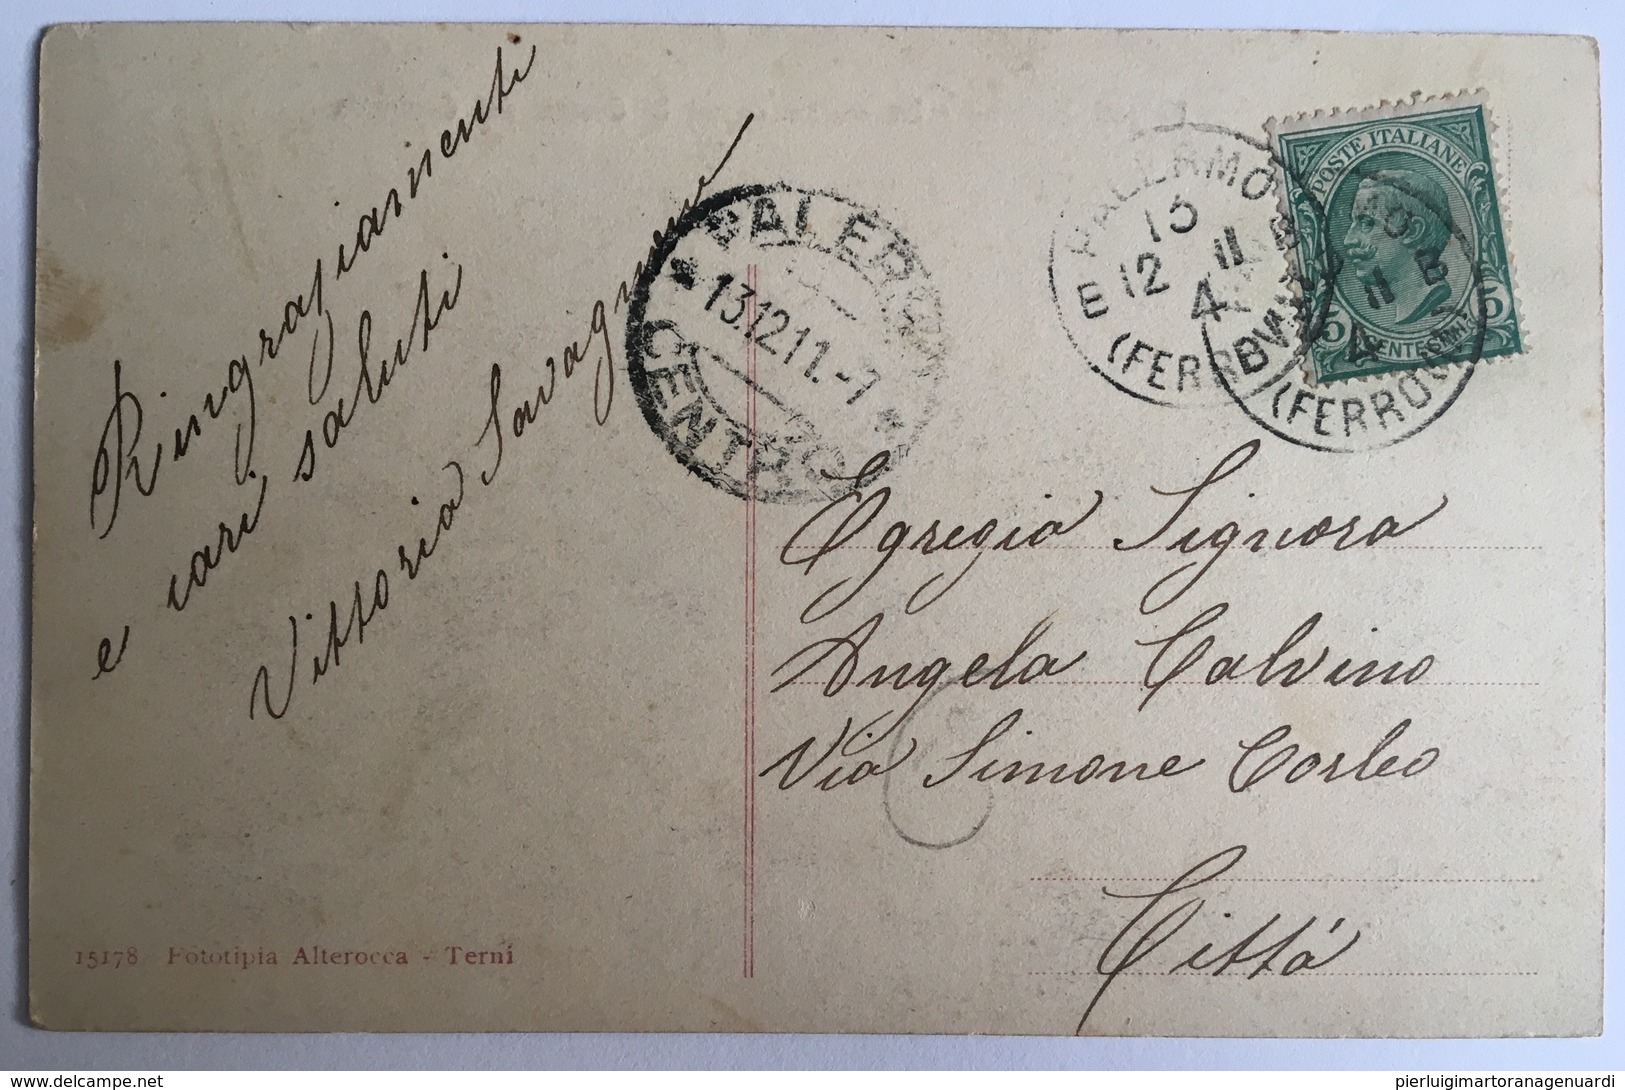 Ringraziamenti
e cari saluti
Vittoria Savagnone
PALERMO
13.12.11.-7
CENTRO
PALERMO
13
12 11
4
E
(FERROVIA)
POSTE ITALIANE
5 CENTESIMI 5
11 B
4
(FERROVIA)
Egregia Signora
Angela Calvino
Via Simone Corleo
Città
15178 Fototipia Alterocca - Terni
pierluigimartoranagenuardi